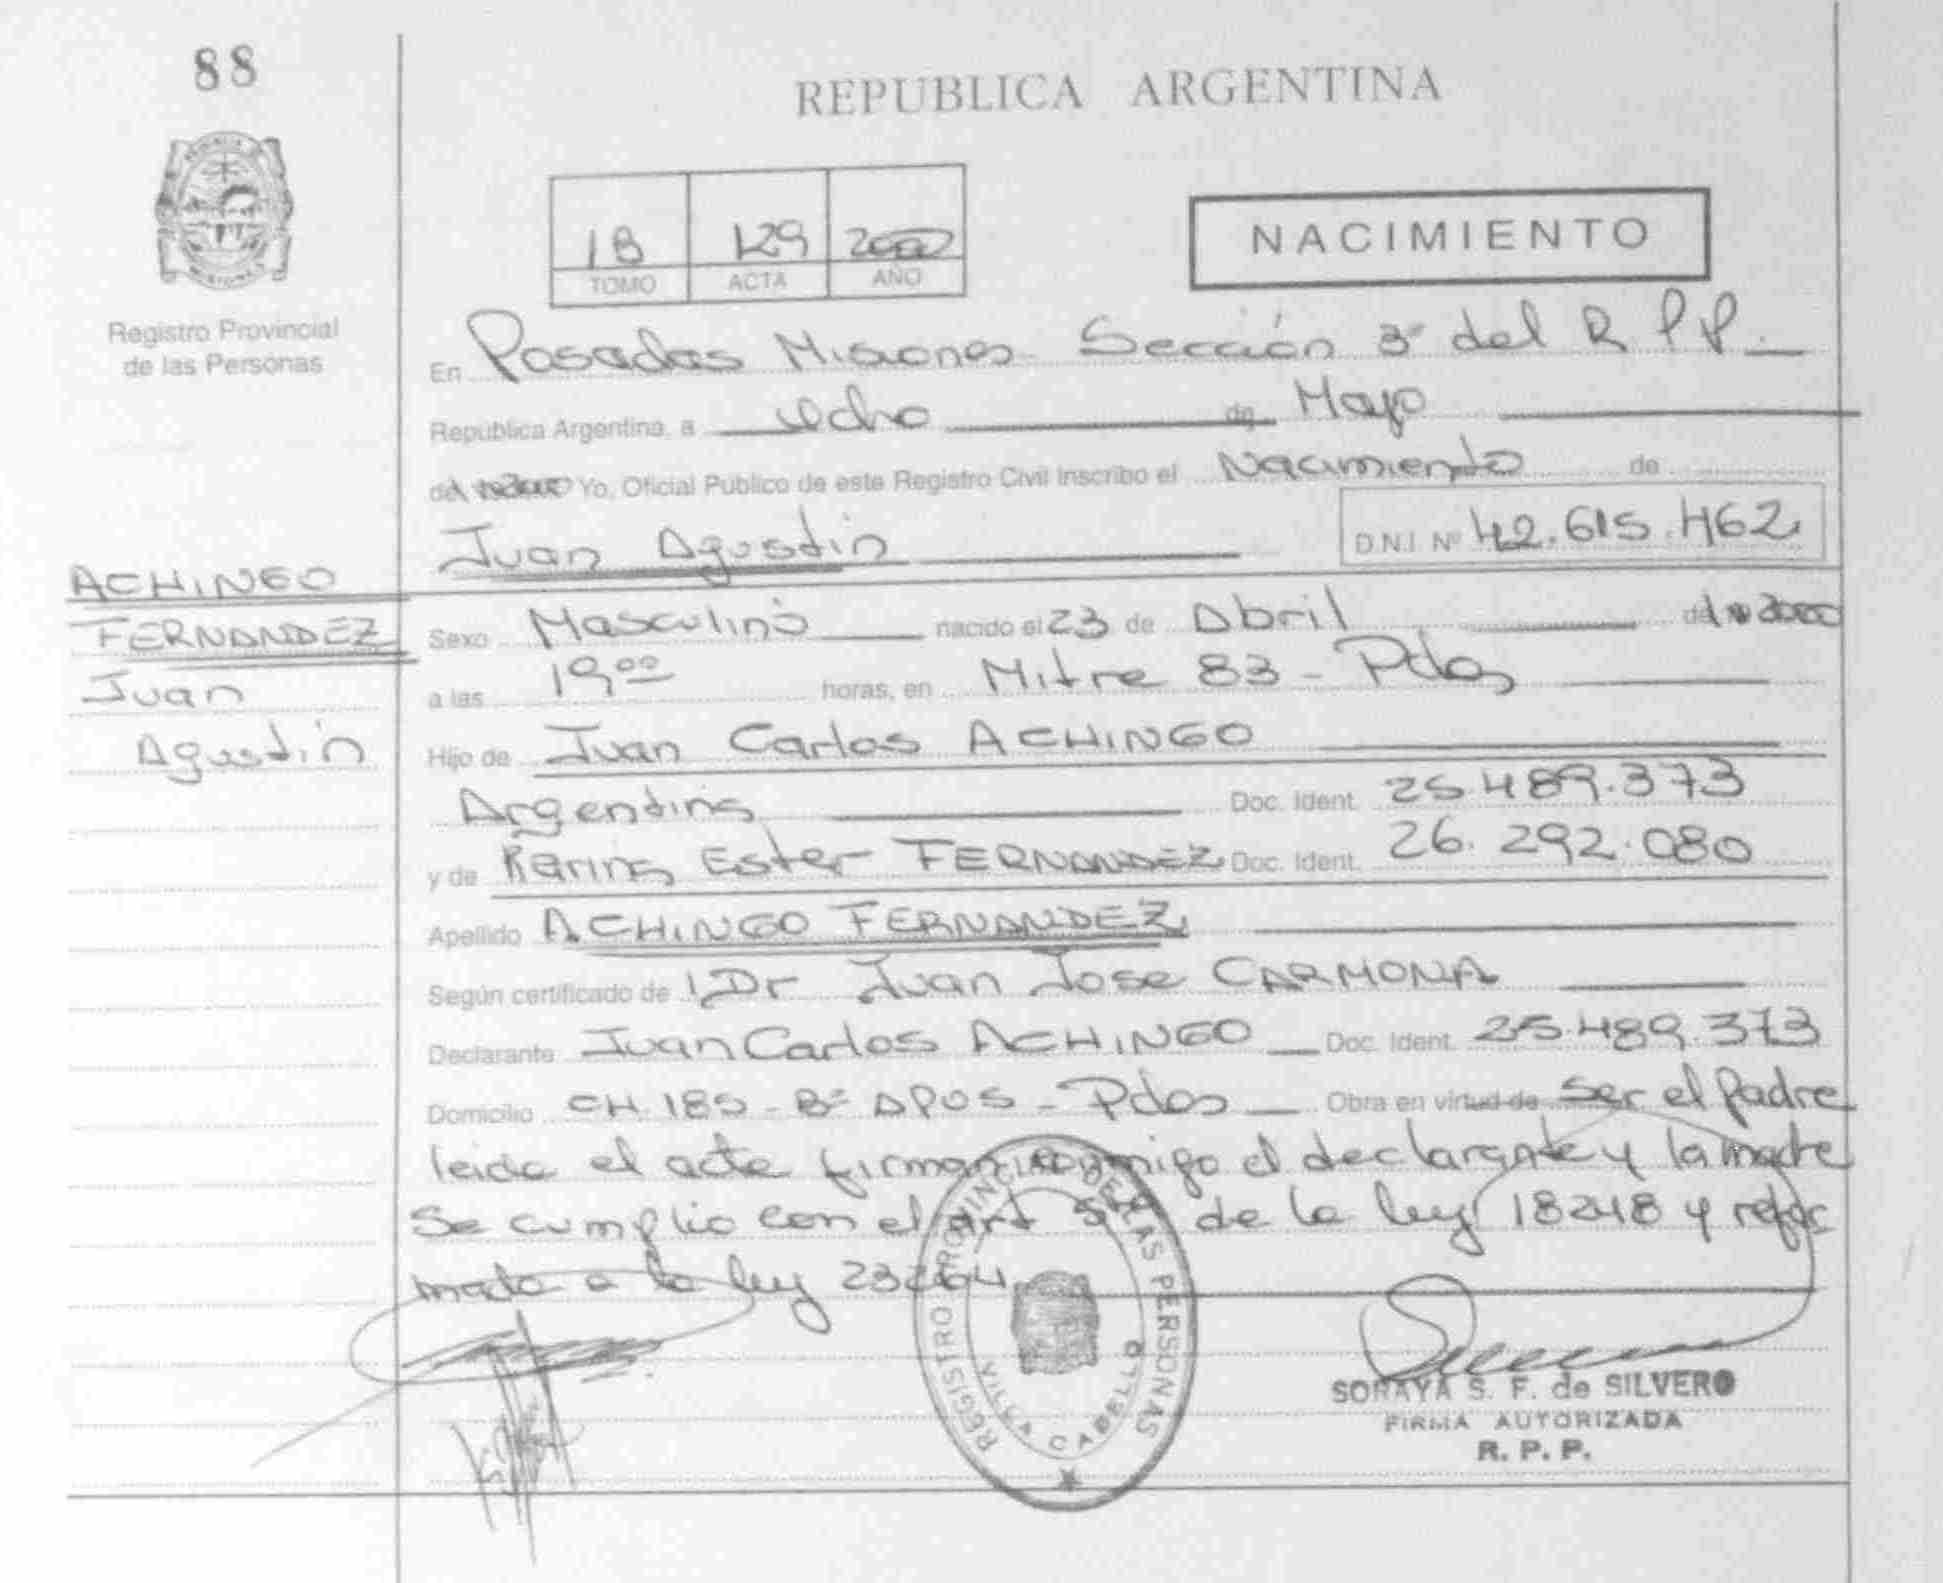 88
REPUBLICA ARGENTINA
Registro Provincial
de las Personas
1B 129 2000
TOMO ACTA AÑO
NACIMIENTO
En Posadas Misiones Sección 3ª del R P P.
República Argentina, a ocho de Mayo
del 2000 Yo, Oficial Público de este Registro Civil Inscribo el Nacimiento de
Juan Agustin D.N.I. Nº 42.615.462
ACHINGO
FERNANDEZ
Juan
Agustin
Sexo Masculino nacido el 23 de Abril del 2000
a las 19 00 horas, en Mitre 83 - Pdas
Hijo de Juan Carlos ACHINGO
Argentina Doc. Ident. 25.489.373
y de Karina Ester FERNANDEZ Doc. Ident. 26.292.080
Apellido ACHINGO FERNANDEZ
Según certificado de Dr Juan Jose CARMONA
Declarante Juan Carlos ACHINGO Doc. Ident. 25.489.373
Domicilio CH. 185 - Bº APOS - Pdas Obra en virtud de ser el padre
leida el acta firman conmigo el declarante y la madre
Se cumplio con el art de la ley 18248 y refor
mada a la ley 23264
REGISTRO PROVINCIAL DE LAS PERSONAS
VILLA CABELLO
SORAYA S. F. de SILVERO
FIRMA AUTORIZADA
R. P. P.